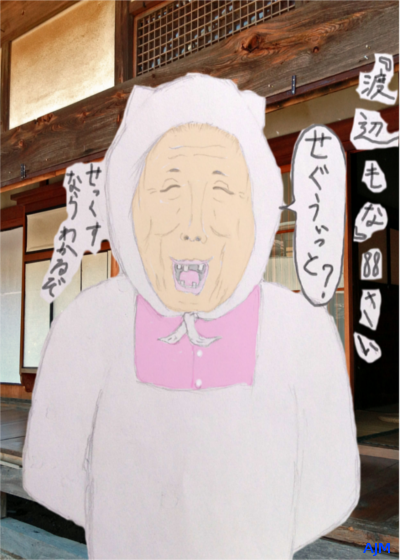 『渡辺もな』88さい
せぐうぃっと?
せっくす
ならわかるぞ
AJM